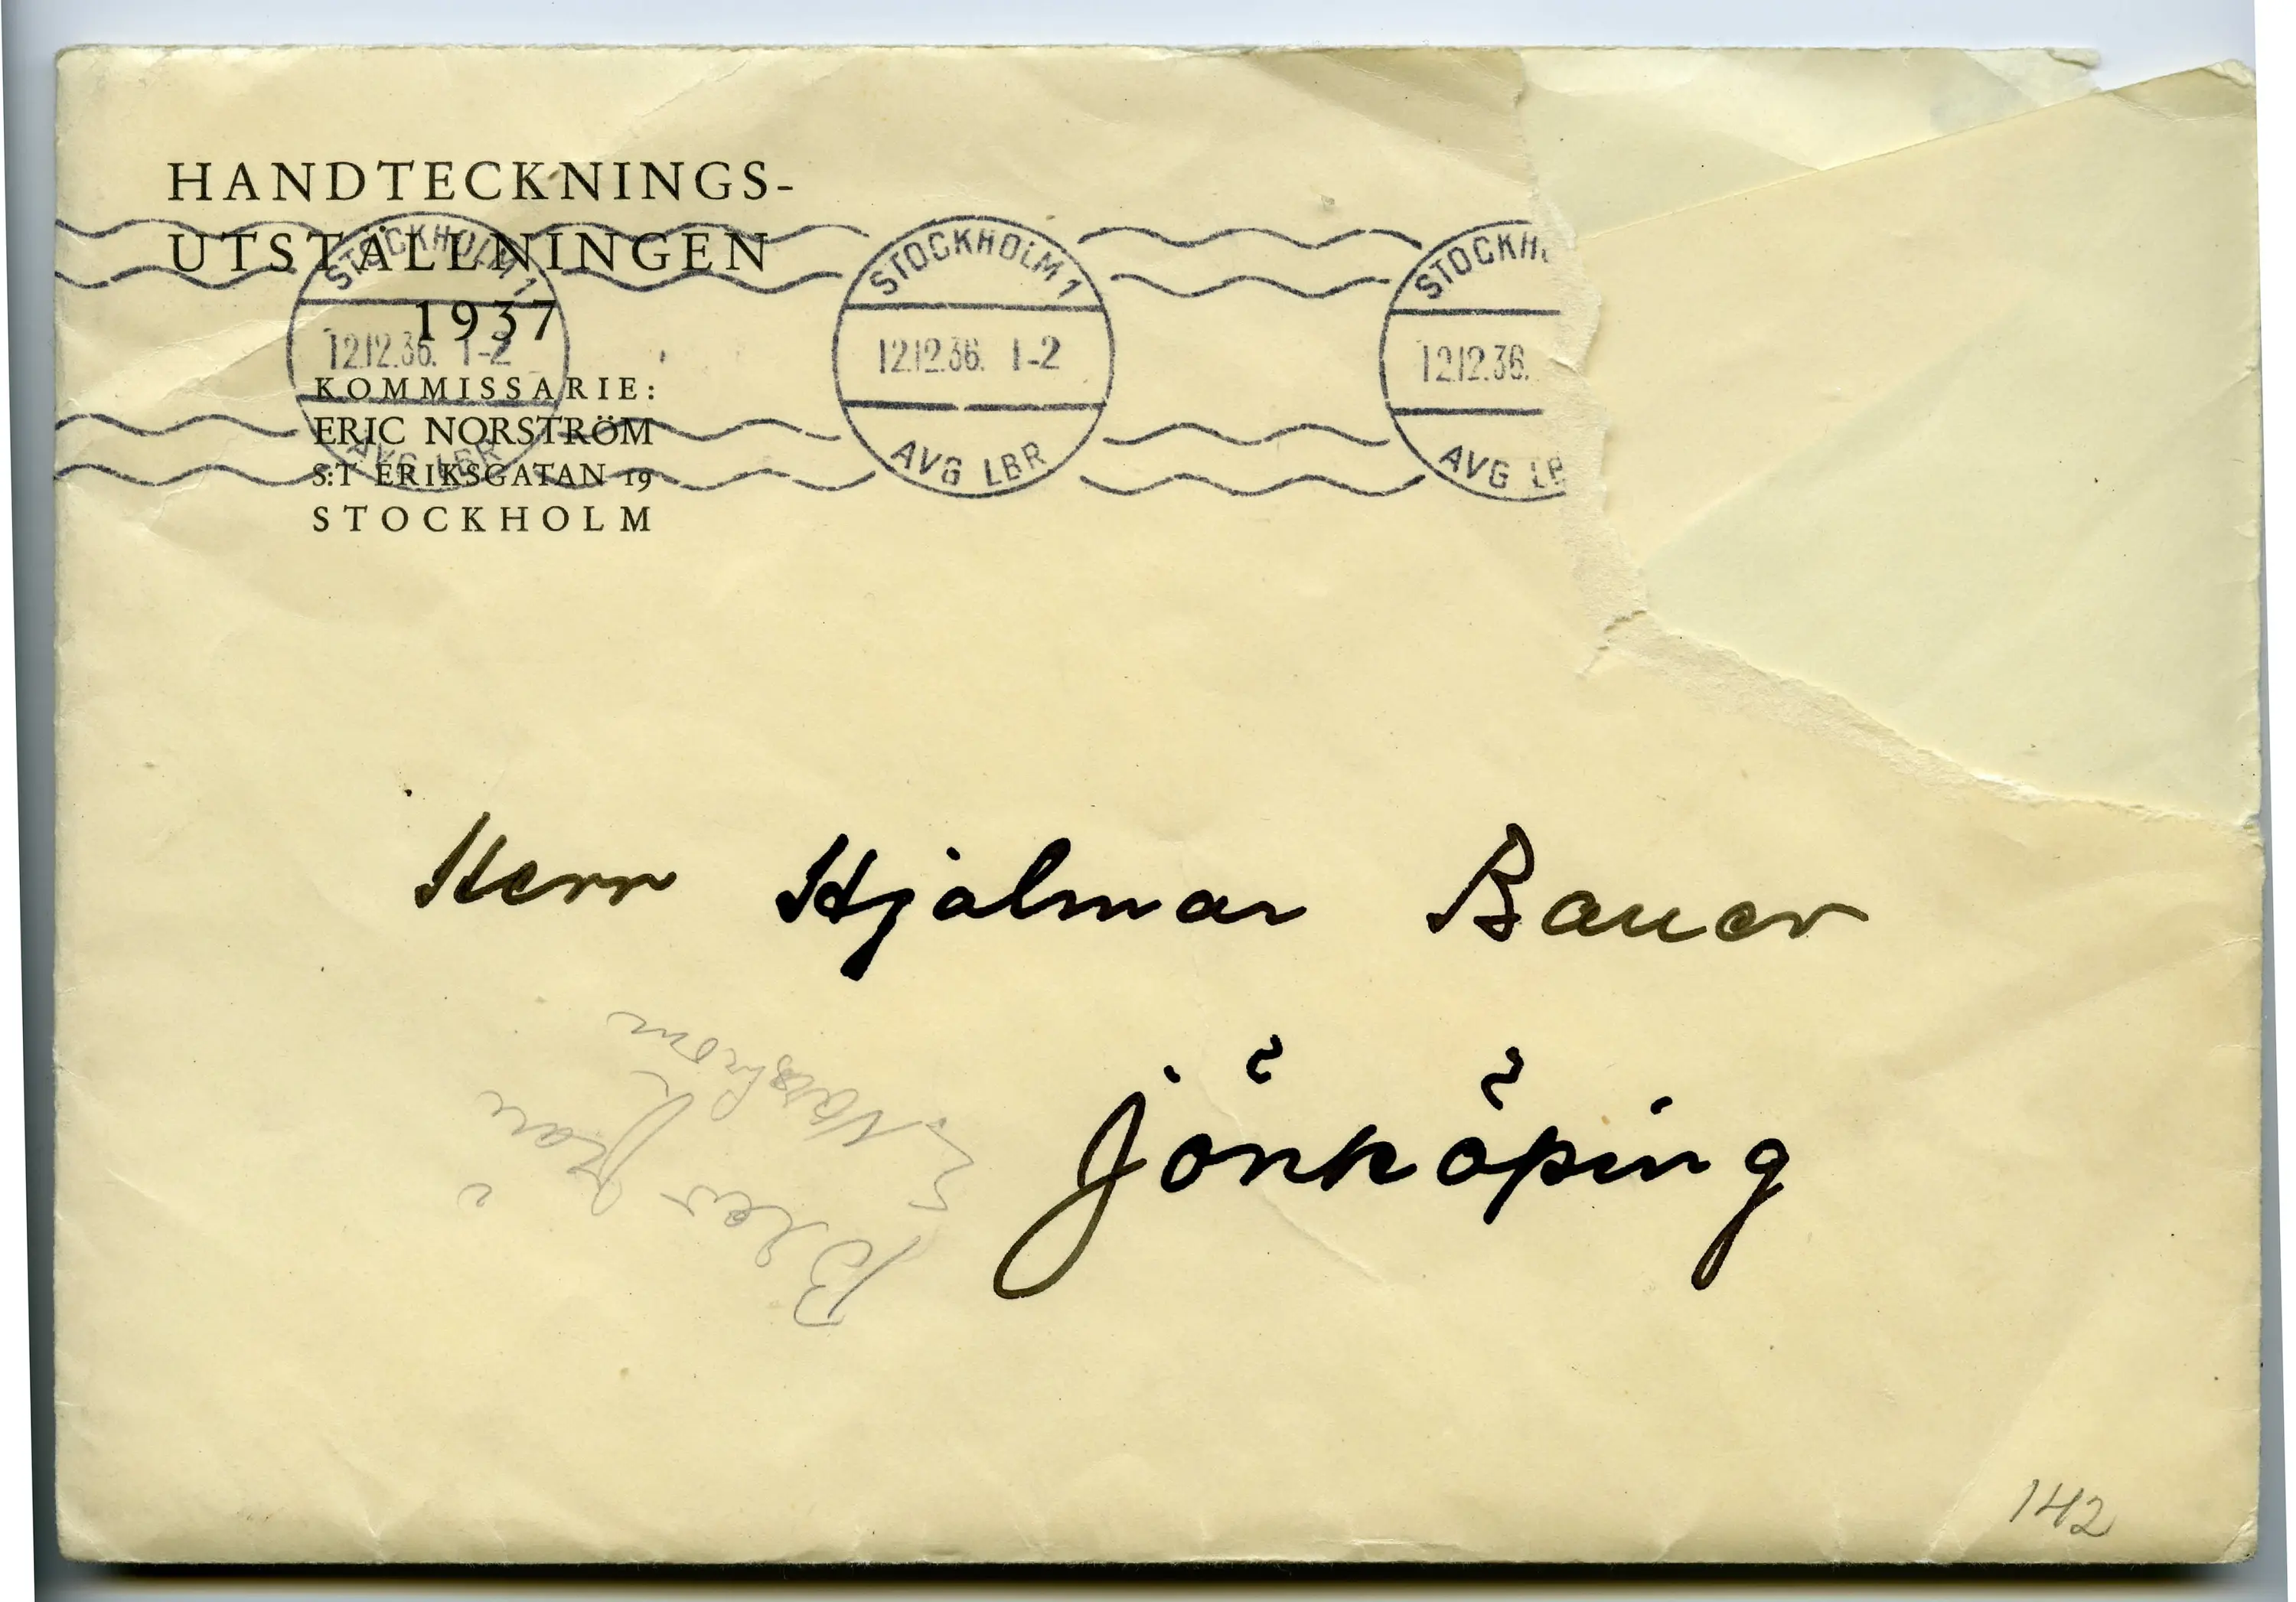 HANDTECKNINGS-
UTSTÄLLNINGEN
1937
KOMMISSARIE:
ERIC NORSTRÖM
S:T ERIKSGATAN 19
STOCKHOLM
STOCKHOLM 1
12.12.36. 1-2
AVG LBR
STOCKHOLM 1
12.12.36. 1-2
AVG LBR
STOCKH
12.12.36.
AVG LB
Herr Hjalmar Bauer
Jönköping
Brev från
E Norström
142